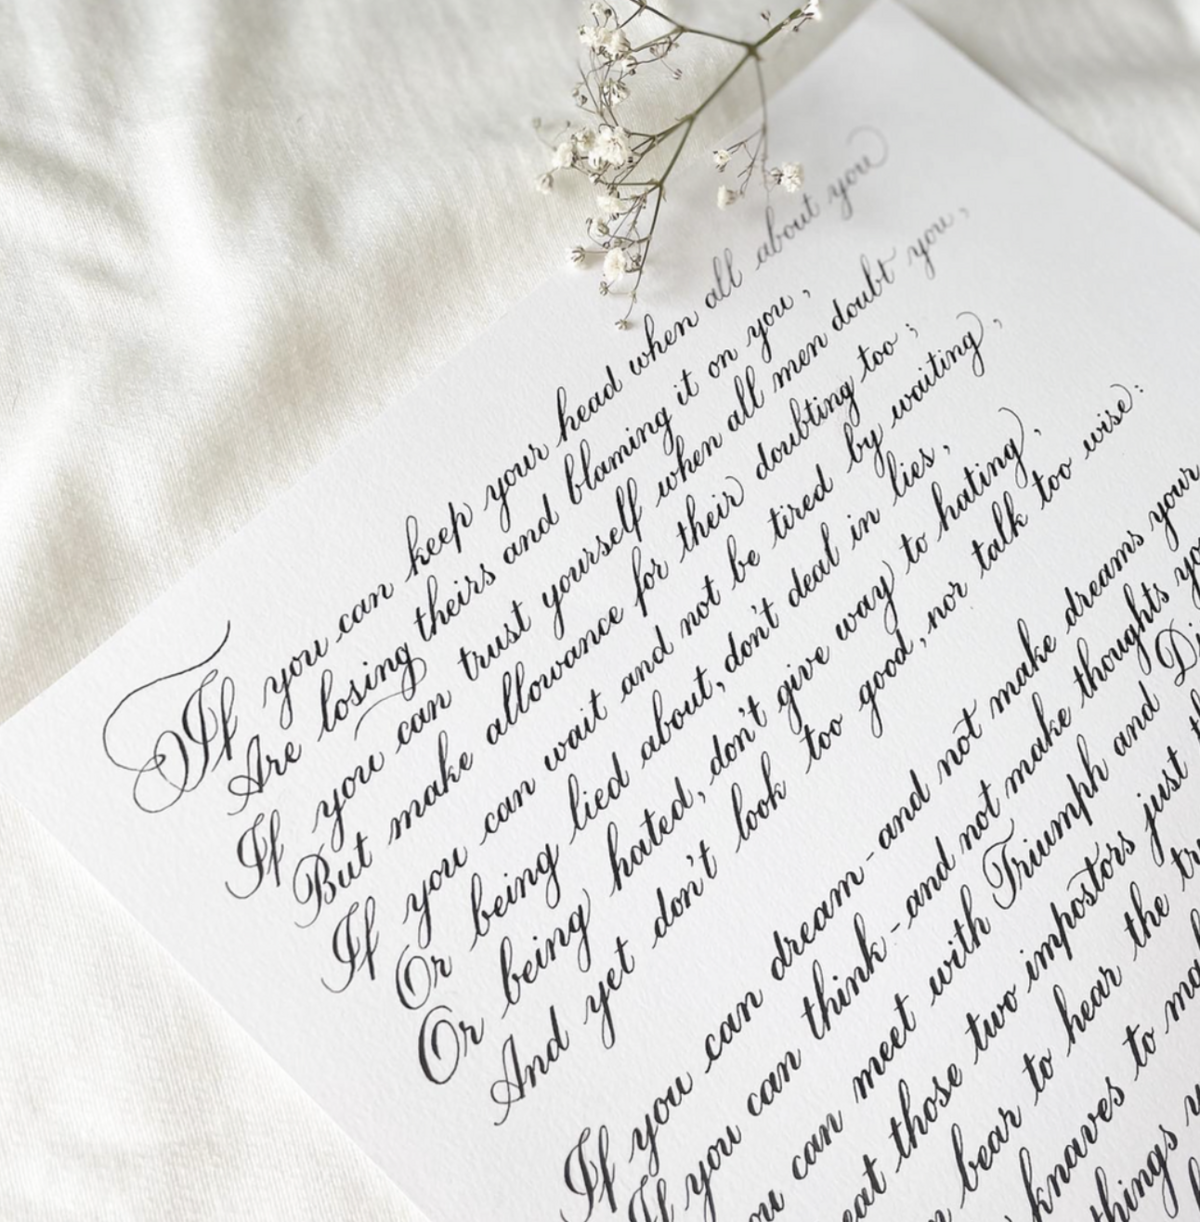 If you can keep your head when all about you
Are losing theirs and blaming it on you,
If you can trust yourself when all men doubt you,
But make allowance for their doubting too;
If you can wait and not be tired by waiting,
Or being lied about, don't deal in lies,
Or being hated, don't give way to hating,
And yet don't look too good, nor talk too wise:
If you can dream-and not make dreams your
If you can think-and not make thoughts
you can meet with Triumph and
those two impostors just
bear to hear the
knaves to
things